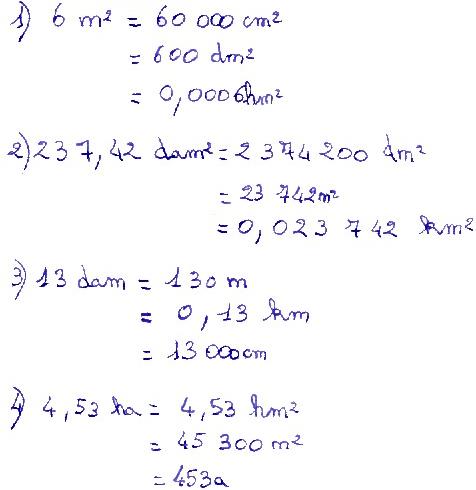 1) 6 m² = 60 000 cm²
= 600 dm²
= 0,0006hm²
2) 237,42 dam² = 2 374 200 dm²
= 23 742m²
= 0,023 742 km²
3) 13 dam = 130 m
= 0,13 km
= 13 000cm
4) 4,53 ha = 4,53 hm²
= 45 300 m²
= 453a